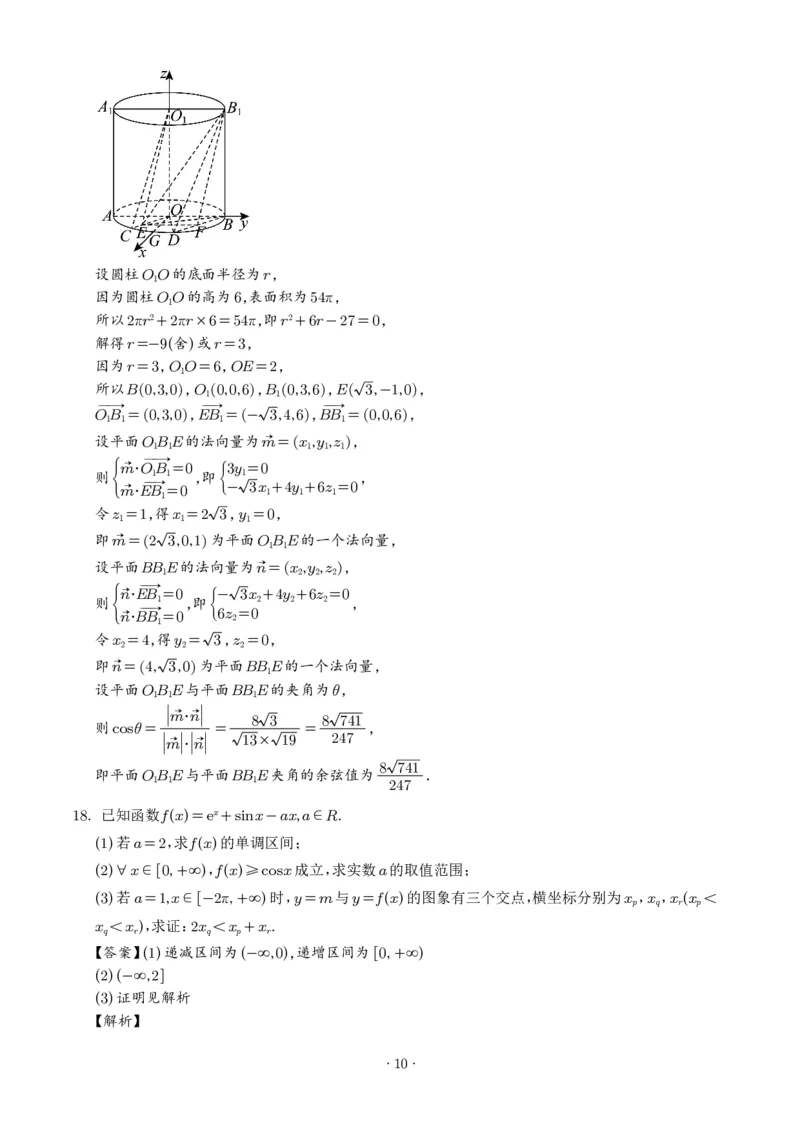 z
A₁ O₁ B₁
A O B y
C E G D F
x
设圆柱O₁O的底面半径为r,
因为圆柱O₁O的高为6,表面积为54π,
所以2πr²+2πr×6=54π,即r²+6r-27=0,
解得r=-9(舍)或r=3,
因为r=3,O₁O=6,OE=2,
所以B(0,3,0),O₁(0,0,6),B₁(0,3,6),E(√3,-1,0),
O₁B₁→=(0,3,0),EB₁→=(-√3,4,6),BB₁→=(0,0,6),
设平面O₁B₁E的法向量为m⃗=(x₁,y₁,z₁),
则{m⃗·O₁B₁→=0 m⃗·EB₁→=0,即{3y₁=0 -√3x₁+4y₁+6z₁=0,
令z₁=1,得x₁=2√3,y₁=0,
即m⃗=(2√3,0,1)为平面O₁B₁E的一个法向量,
设平面BB₁E的法向量为n⃗=(x₂,y₂,z₂),
则{n⃗·EB₁→=0 n⃗·BB₁→=0,即{-√3x₂+4y₂+6z₂=0 6z₂=0,
令x₂=4,得y₂=√3,z₂=0,
即n⃗=(4,√3,0)为平面BB₁E的一个法向量,
设平面O₁B₁E与平面BB₁E的夹角为θ,
则cosθ=|m⃗·n⃗|/|m⃗|·|n⃗|=8√3/√13×√19=8√741/247,
即平面O₁B₁E与平面BB₁E夹角的余弦值为8√741/247.
18. 已知函数f(x)=eˣ+sinx-ax,a∈R.
(1)若a=2,求f(x)的单调区间;
(2)∀x∈[0,+∞),f(x)⩾cosx成立,求实数a的取值范围;
(3)若a=1,x∈[-2π,+∞)时,y=m与y=f(x)的图象有三个交点,横坐标分别为xₚ,x_q,xᵣ(xₚ<
x_q<xᵣ),求证:2x_q<xₚ+xᵣ.
【答案】(1)递减区间为(-∞,0),递增区间为[0,+∞)
(2)(-∞,2]
(3)证明见解析
【解析】
·10·